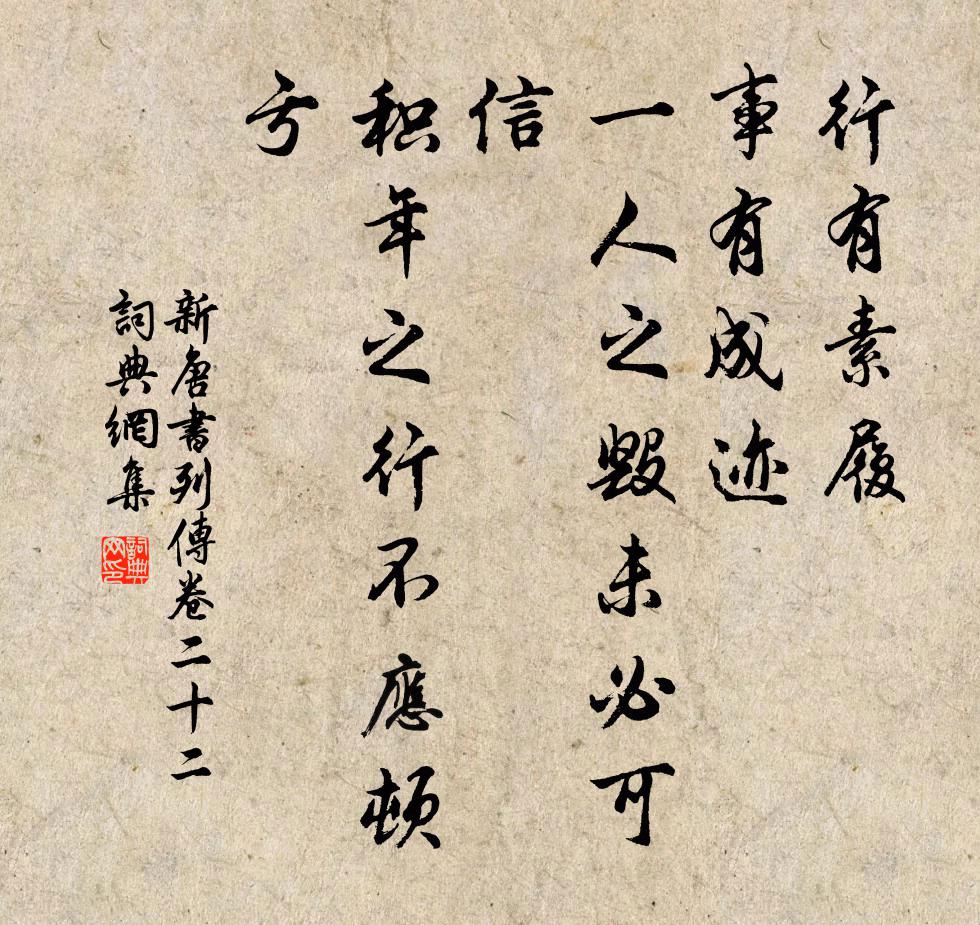 行有素履
事有成迹
一人之毁未必可
信
积年之行不應頓
亏
新唐書列傳卷二十二
詞典網集
詞典網印